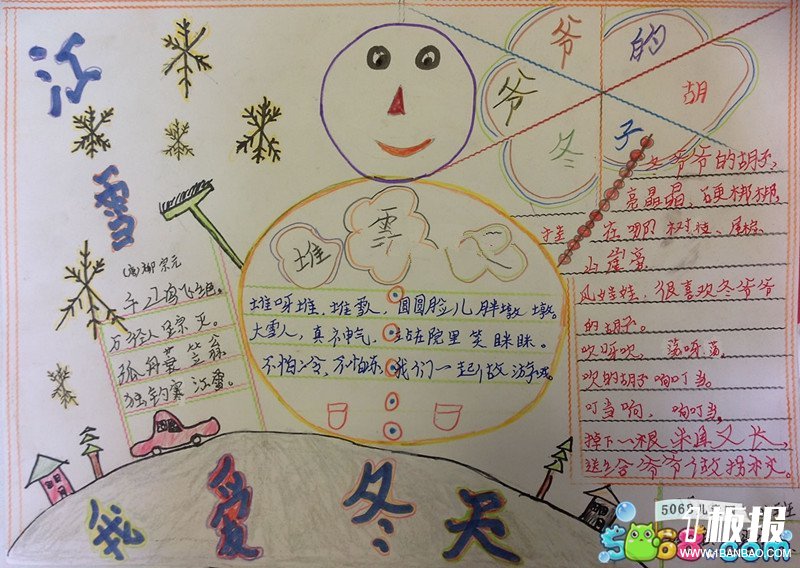 江
雪
(唐)柳宗元
千山鸟飞绝。
万径人踪灭。
孤舟蓑笠翁
独钓寒江雪。
堆
雪
人
堆呀堆，堆雪人，圆圆脸儿胖墩墩。
大雪人，真神气，站在院里笑眯眯。
不怕冷，不怕冻，我们一起做游戏。
冬爷爷的胡子
冬爷爷的胡子，
亮晶晶，硬梆梆
挂在哪 树枝、屋檐
山崖
风娃娃，很喜欢冬爷爷
的胡子。
吹呀吹，荡呀荡，
吹的胡子响叮当。
叮当响，响叮当，
掉下一根米直又长，
送给爷爷做拐杖。
我爱冬天
5068儿
班
1板报
5068.com
WWW.1BANBAO.COM